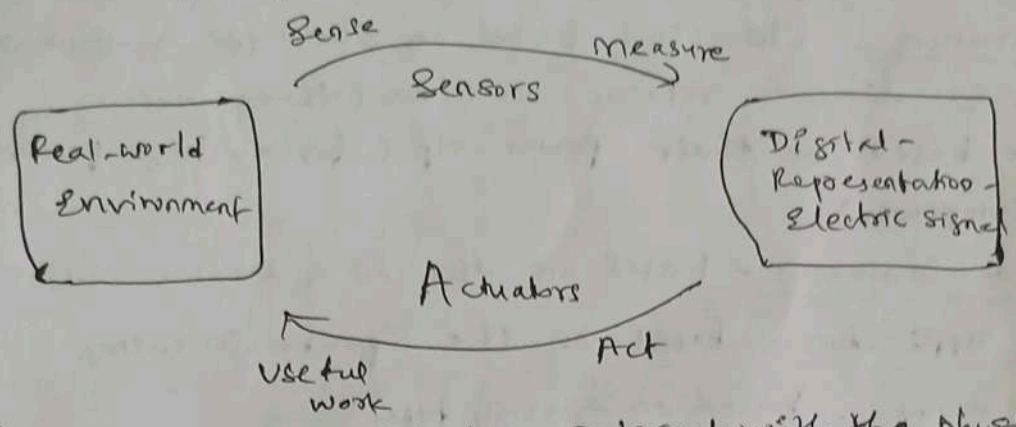 Sense
Measure
Sensors
Real-world
Environment
Digital-
Representation-
Electric signal
Actuators
Act
Useful
work